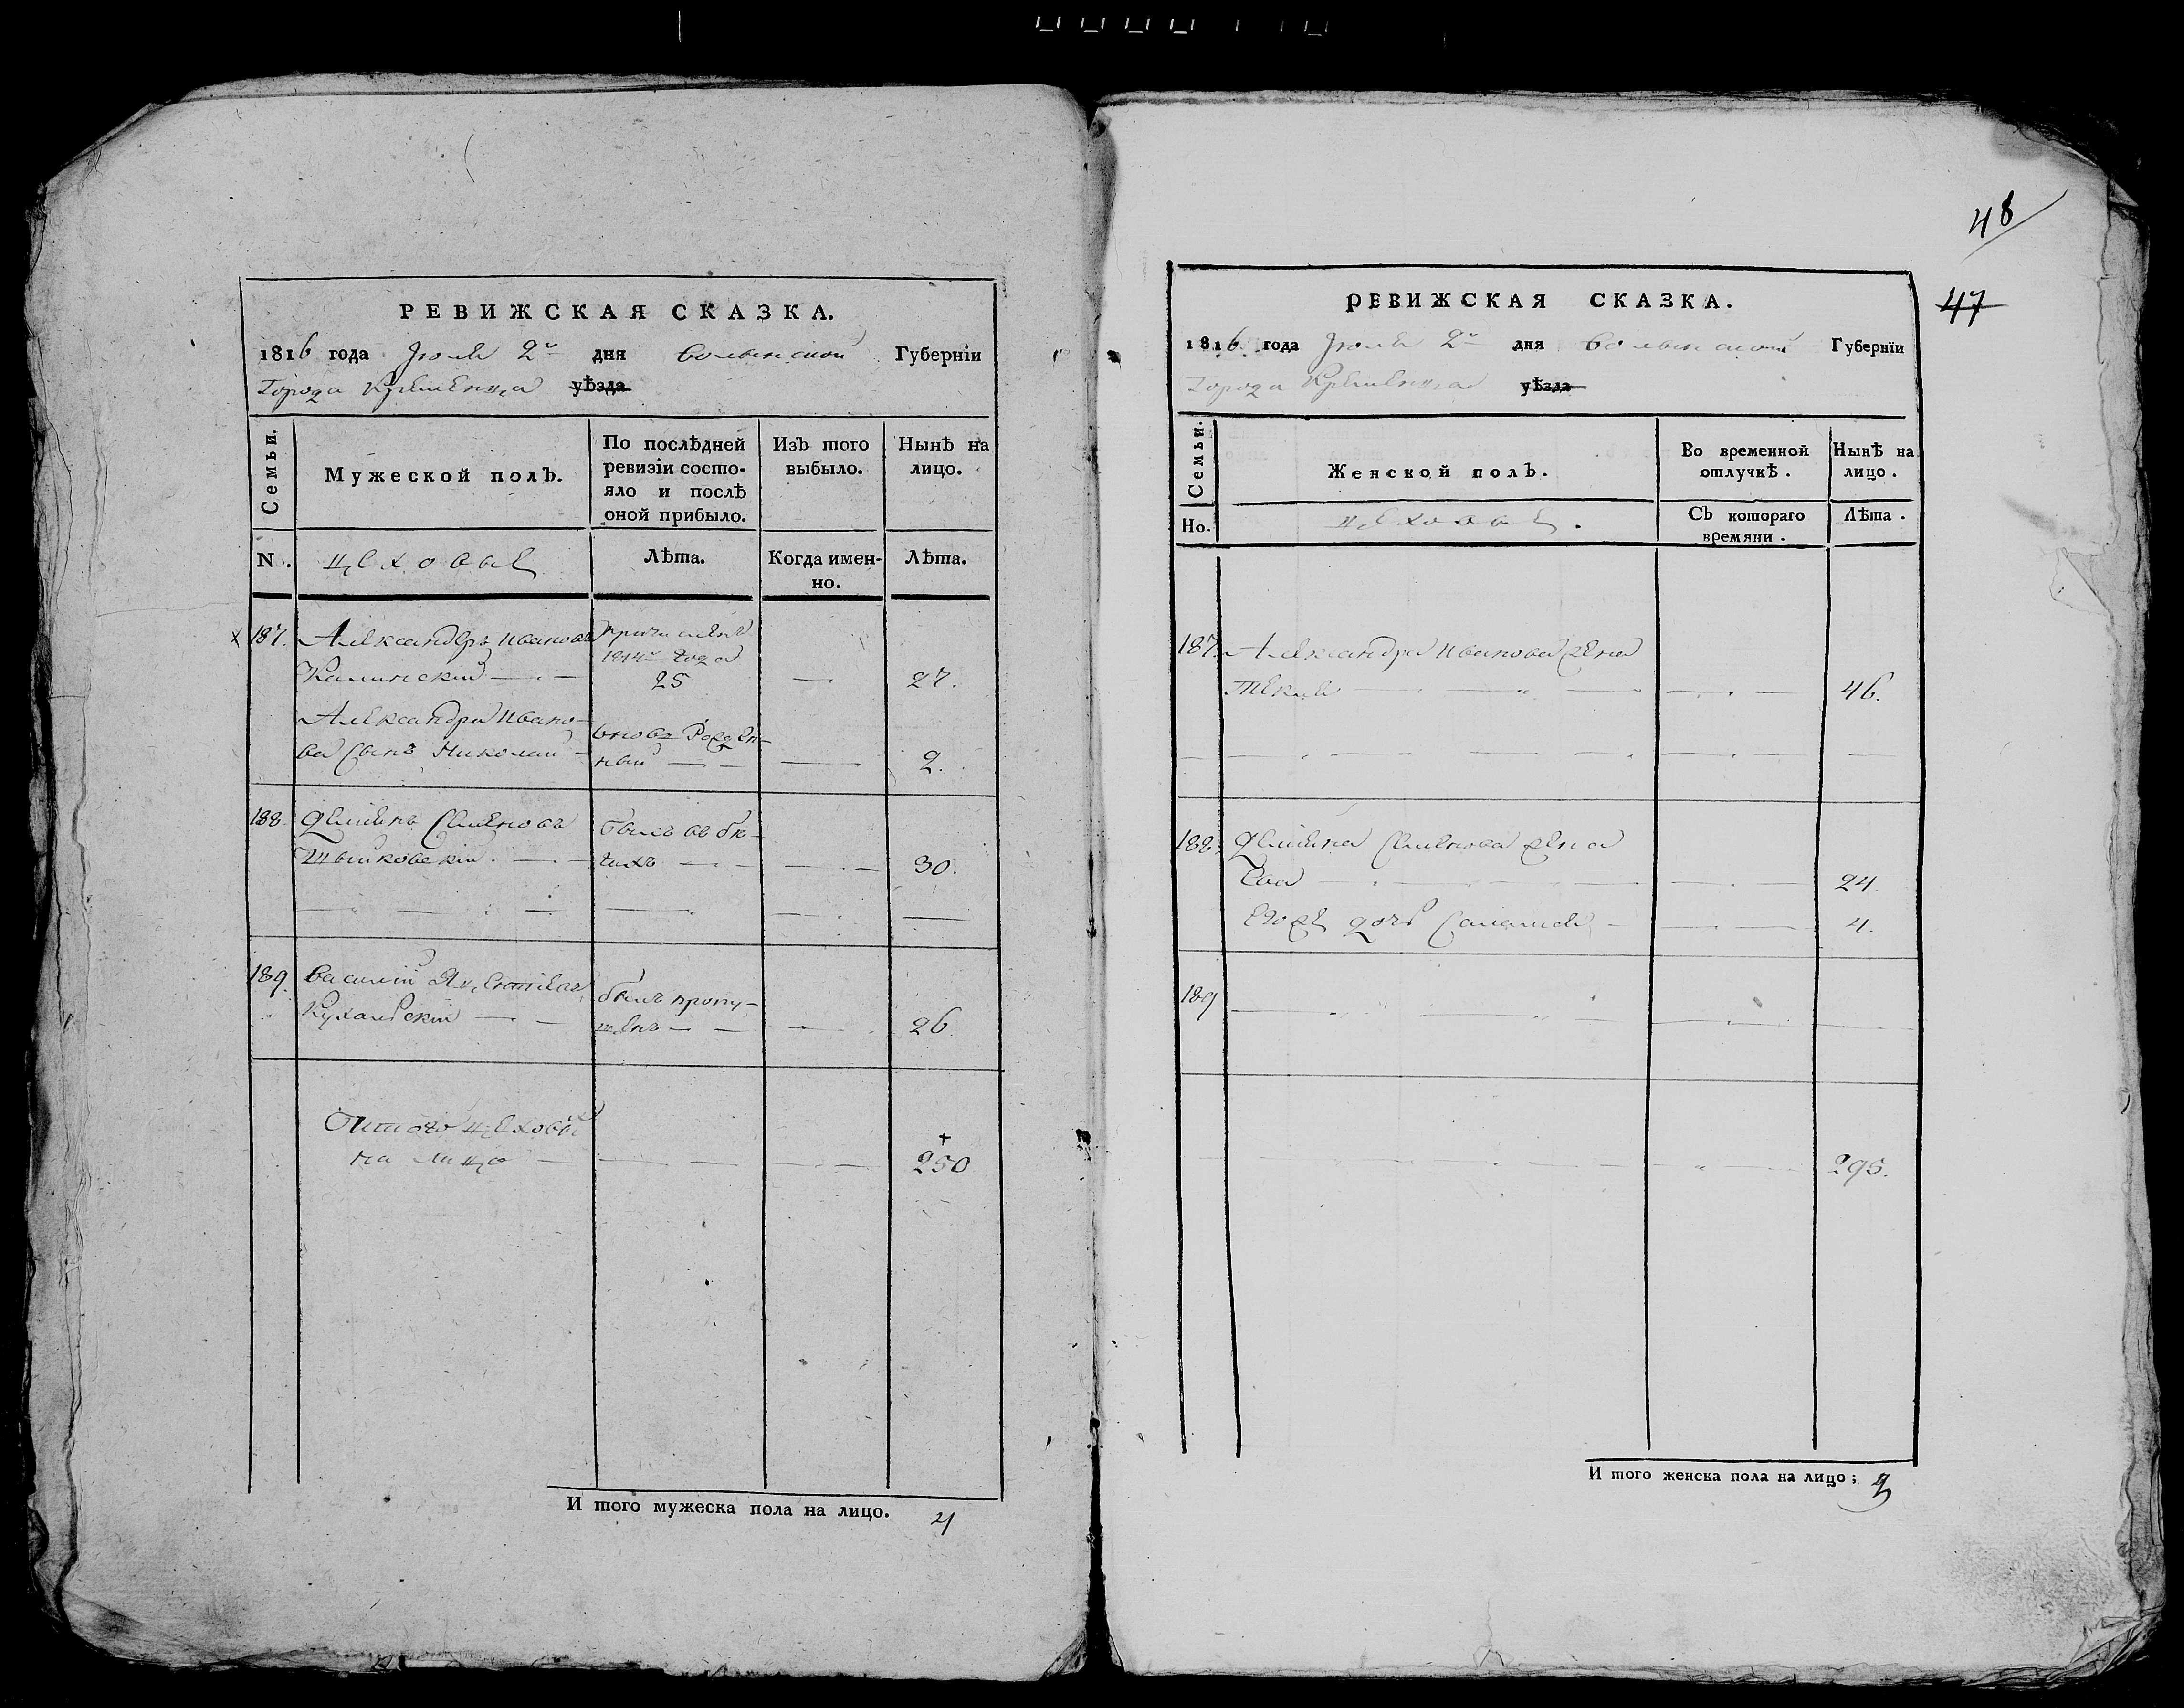 РЕВИЖСКАЯ СКАЗКА.
1816 года Июля 2го дня Волынской Губернїи
Города Кременца уѣзда
Семьи.
Мужеской полъ.
По послѣдней ревизїи состояло и послѣ оной прибыло.
Изъ того выбыло.
Нынѣ на лицо.
N.
цеховые
Лѣта.
Когда именно.
Лѣта.
187. Александръ Ивановъ причисленъ
1814го года
Калинскій 25 27.
Александра Ивано-
ва сынъ Николай вновь рожден-
ный 2.
188. Деміянъ Семеновъ былъ въ бѣ-
гахъ 30.
189. Василій
былъ пропу-
щенъ 26.
Итого цеховыхъ
на лицо 250
И того мужеска пола на лицо. 4
48
47
РЕВИЖСКАЯ СКАЗКА.
1816 года Июля 2го дня Волынской Губернїи
Города Кременца уѣзда
Семьи.
Женской полъ.
Во временной отлучкѣ.
Нынѣ на лицо.
Но.
цеховые.
Съ котораго времяни.
Лѣта.
187. Александра Иванова жена
Текля 46.
188. Деміяна Семенова жена
Ева 24.
Егоже дочь Саломея 4.
189
295.
И того женска пола на лицо; 3